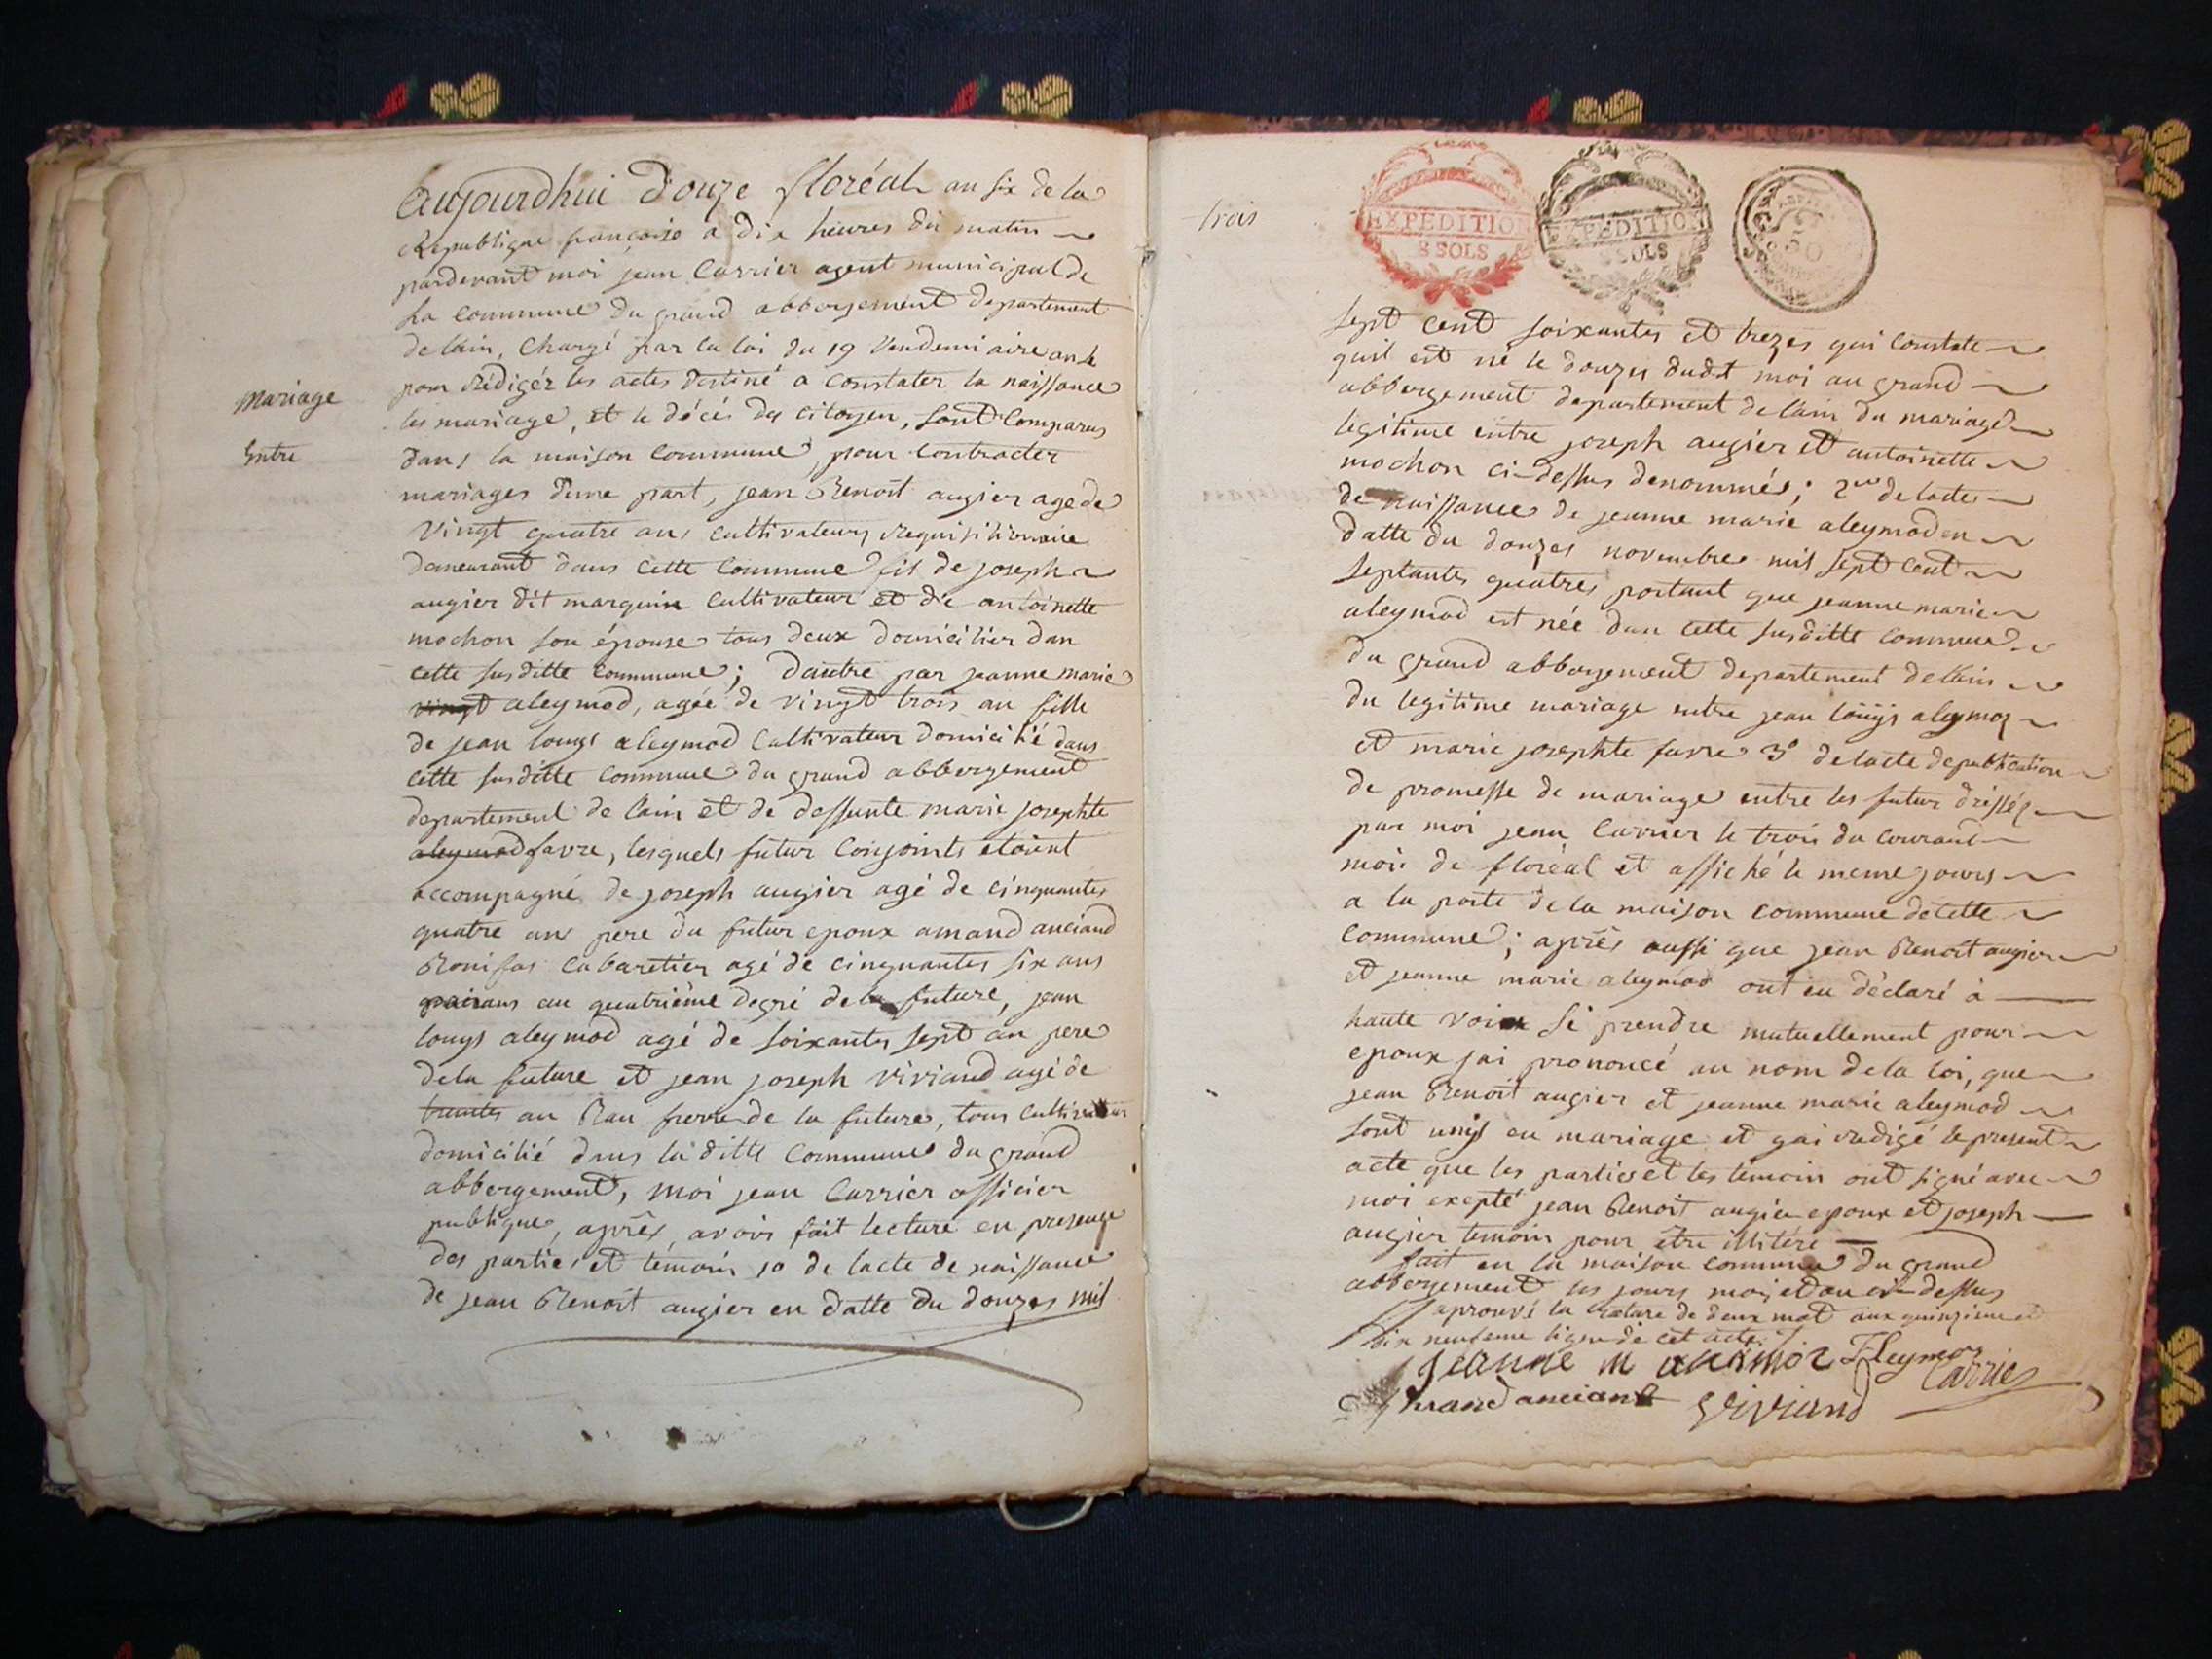 mariage
Entre
Aujourdhui Douze floréal an six de la
Republique françoise a dix heures du matin
pardevant moi jean Carrier agent municipal de
La Commune du grand abbergement departement
de lain, Chargé par la loi du 19 Vendemiaire an 4
pour Rédigér les actes destiné a Constater la naissance
les mariage, et le décés des citoyen, sont Comparus
dans la maison Commune pour Contracter
mariages d'une part, jean Benoit augier age de
Vingt quatre ans cultivateurs Requisitionnaire
demeurant dans Cette Commune fils de joseph
augier dit marquin Cultivateur et de antoinette
mochon son épouse tous deux domicilier dan
cette susditte Commune; dautre par jeanne marie
vingt aleymod, agée de vingt trois an fille
de jean louys aleymod Cultivateur domicilié dans
cette susditte Commune du grand abbergement
departement de lain et de deffunte marie josephte
aleymod favre, lesquels futur Conjoints étoient
accompagné de joseph augier agé de cinquantes
quatre ans pere du futur epoux amand anciand
Bonifas Cabaretier agé de cinquantes six ans
parans au quatrième degré de la future, jean
louys aleymod agé de soixantes sept an pere
dela future et jean joseph viviand agé de
trentes an Beau frere de la future, tous Cultivateur
domicilié dans la ditte Commune du grand
abbergement, moi jean Carrier officier
publique, après, avoir fait lecture en presence
des parties et témoin 10 de lacte de naissance
de jean Benoit augier en datte du douzes mil
trois
EXPEDITION
8 SOLS
EXPEDITION
8 SOLS
50
sept cent soixantes et trezes qui Constate
quil est né le douzes dudt moi au grand
abbergement departement de lain du mariage
legitime entre joseph augier et antoinette
mochon ci-dessus denommés; 2º de lactes
de naissance de jeanne marie aleymod en
datte du douzes novembre mil sept Cent
septantes quatres portant que jeanne marie
aleymod est née dan cette susditte Commune
du grand abbergement departement de lain
du legitime mariage entre jean loüys aleymoz
et marie josephte favre 3º de lacte de publication
de promesse de mariage entre les futur dréssés
par moi jean Carrier le trois du Courant
mois de floréal et affiché le meme jours
a la porte de la maison Commune de Cette
Commune; après aussi que jean Benoit augier
et jeanne marie aleymod ont eu déclaré à
haute voix se prendre mutuellement pour
epoux jai prononcé au nom de la loi, que
jean Benoit augier et jeanne marie aleymod
sont unys en mariage et jai redigé le present
acte que les parties et les témoin ont signé avec
moi exepté jean Benoit augier epoux et joseph
augier temoin pour être illitéré
fait en la maison Commune du grand
abbergement les jours mois et an ci-dessus
aprouvé la rature de deux mot aux quinzieme et
dix neuveme ligne de cet acte
Jeanne m aleimoz Aleymoz
Carrier
amand anciant
J Viviand